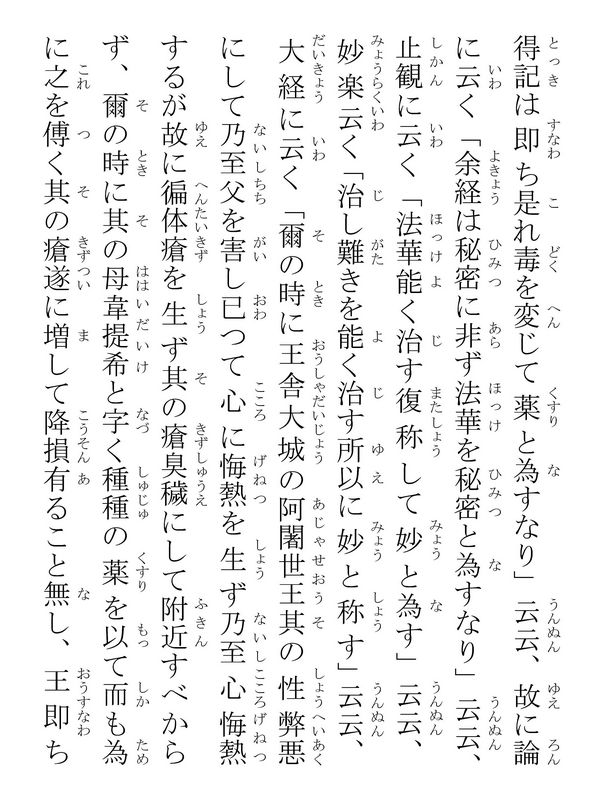 得記は即ち是れ毒を変じて薬と為すなり」云云、故に論
に云く「余経は秘密に非ず法華を秘密と為すなり」云云、
止観に云く「法華能く治す復称して妙と為す」云云、
妙楽云く「治し難きを能く治す所以に妙と称す」云云、
大経に云く「爾の時に王舎大城の阿闍世王其の性弊悪
にして乃至父を害し已つて心に悔熱を生ず乃至心悔熱
するが故に徧体瘡を生ず其の瘡臭穢にして附近すべから
ず、爾の時に其の母韋提希と字く種種の薬を以て而も為
に之を傅く其の瘡遂に増して降損有ること無し、王即ち